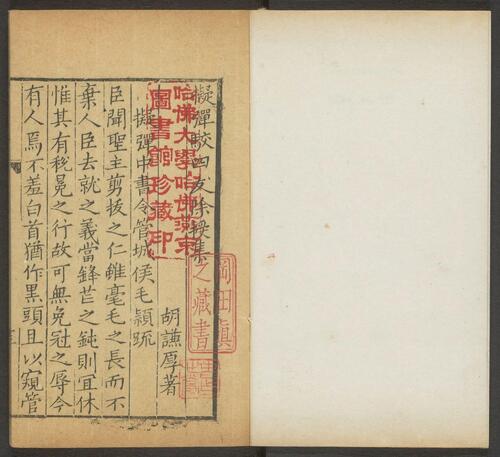 擬彈駁四友除授集
胡謙厚著
擬彈中書令管城侯毛穎疏
臣聞聖主剪拔之仁雖毫毛之長而不
棄人臣去就之義當鋒芒之鈍則宜休
惟其有稅冕之行故可無免冠之辱今
有人焉不羞白首猶作黑頭且以窺管
哈佛大學哈佛燕京
圖書館珍藏印
岡田真
之藏書